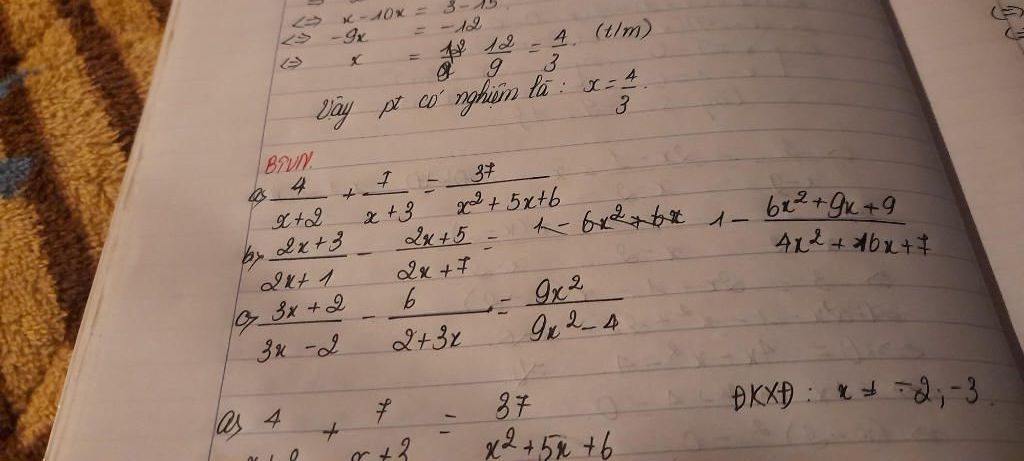 ⇔ x - 10x = 3 - 15
⇔ -9x = -12
⇔ x = 12/9 = 4/3. (t/m)
Vậy pt có nghiệm là: x = 4/3.
BTVN.
a, 4/(x+2) + 7/(x+3) = 37/(x²+5x+6)
b, (2x+3)/(2x+1) - (2x+5)/(2x+7) = 1 - 6x²+6x 1 - (6x²+9x+9)/(4x²+16x+7)
c, (3x+2)/(3x-2) - 6/(2+3x) = 9x²/(9x²-4)
a, 4/(x+2) + 7/(x+3) = 37/(x²+5x+6) ĐKXĐ: x ≠ -2; -3.